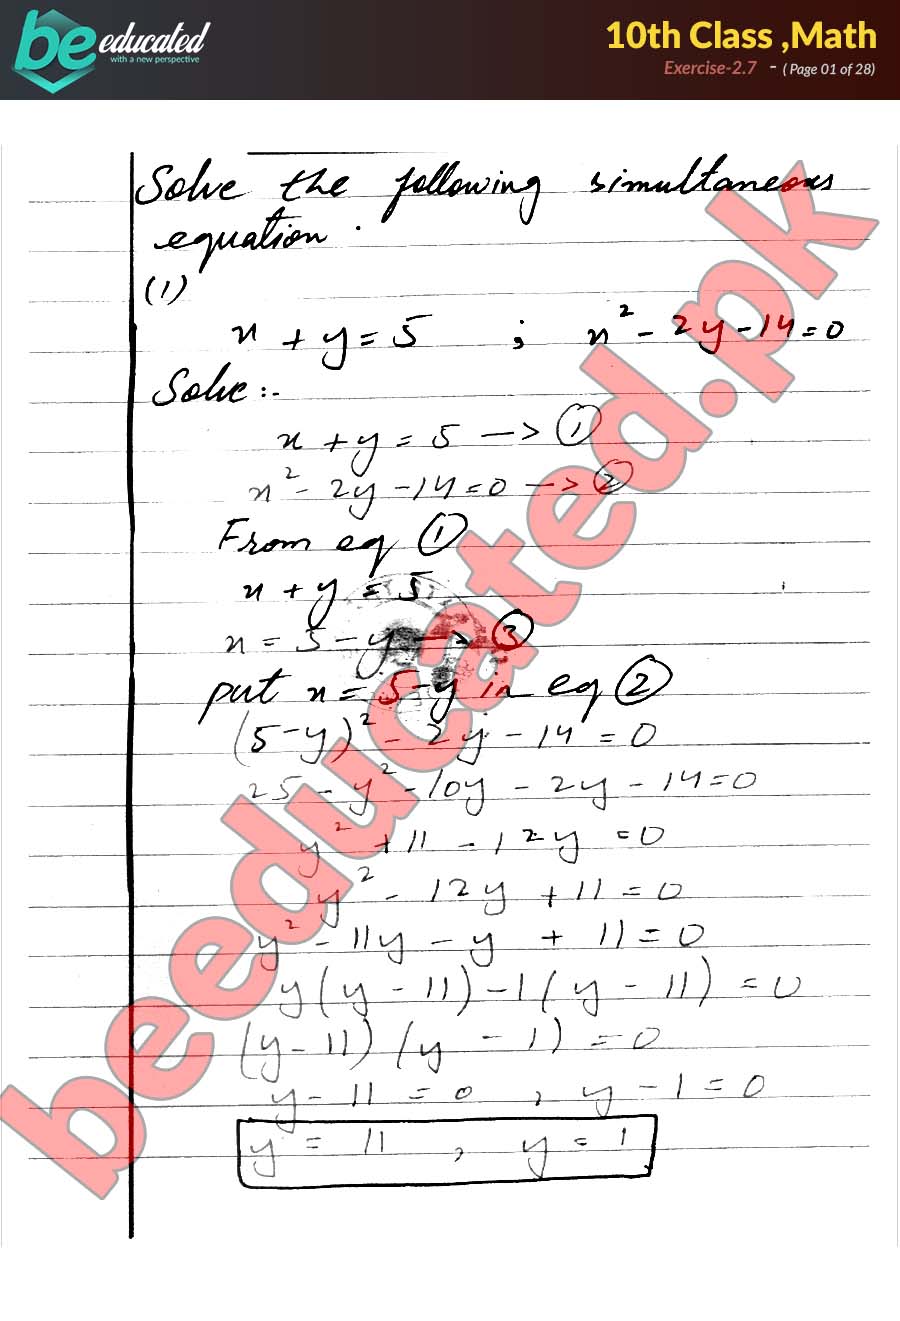 be educated
with a new perspective
10th Class ,Math
Exercise-2.7 - ( Page 01 of 28)
Solve the following simultaneous
equation.
(1)
x + y = 5 ; x² - 2y - 14 = 0
Solve:-
x + y = 5 -> ①
x² - 2y - 14 = 0 -> ②
From eq ①
x + y = 5
x = 5 - y -> ③
put x = 5-y in eq ②
(5-y)² - 2y - 14 = 0
25 - y² - 10y - 2y - 14 = 0
y² + 11 - 12y = 0
y² - 12y + 11 = 0
y² - 11y - y + 11 = 0
y(y - 11) - 1(y - 11) = 0
(y - 11) (y - 1) = 0
y - 11 = 0 , y - 1 = 0
y = 11 , y = 1
beeducated.pk